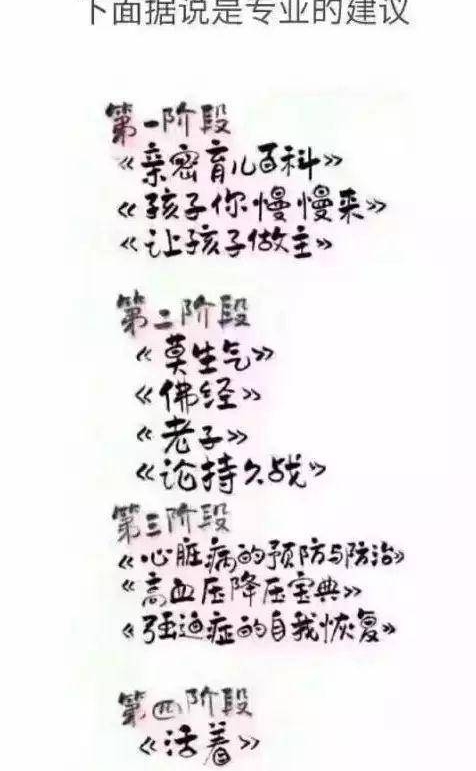 下面据说是专业的建议
第一阶段
《亲密育儿百科》
《孩子你慢慢来》
《让孩子做主》
第二阶段
《莫生气》
《佛经》
《老子》
《论持久战》
第三阶段
《心脏病的预防与防治》
《高血压降压宝典》
《强迫症的自我恢复》
第四阶段
《活着》